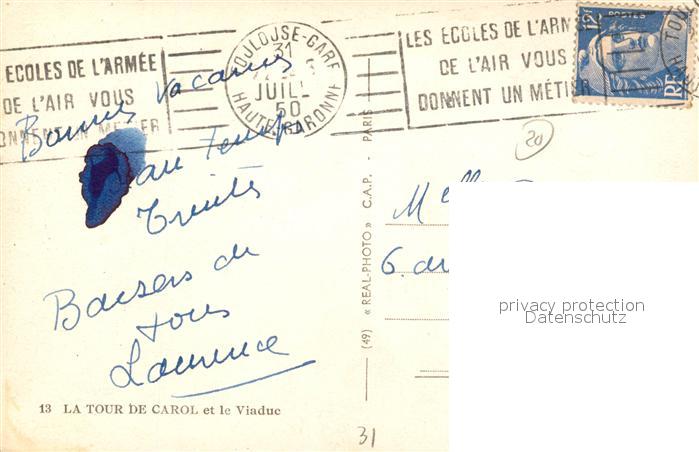 ECOLES DE L'ARMÉE
DE L'AIR VOUS
DONNENT UN MÉTIER
TOULOUSE-GARE
31
JUILL
50
HAUTE-GARONNE
LES ECOLES DE L'ARMÉE
DE L'AIR VOUS
DONNENT UN MÉTIER
12F
POSTES
RF
20
Bonnes vacances
Baisers de
tous
Laurence
13 LA TOUR DE CAROL et le Viaduc
(49) « REAL-PHOTO » C.A.P. - PARIS
Melle
6
privacy protection
Datenschutz
31